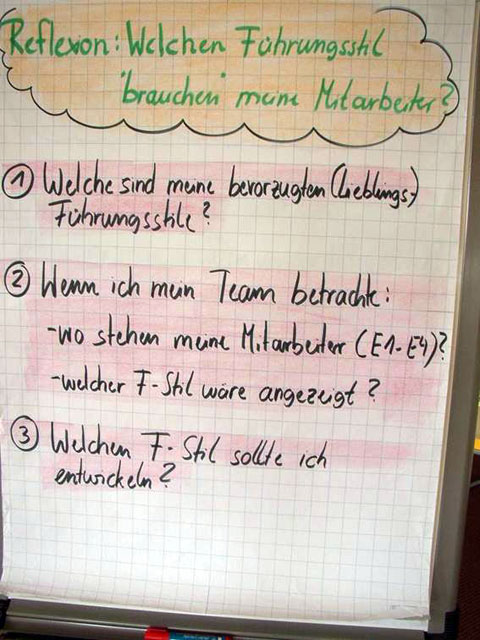 Reflexion: Welchen Führungsstil
"brauchen" meine Mitarbeiter?
① Welche sind meine bevorzugten (Lieblings-)
Führungsstile?
② Wenn ich mein Team betrachte:
-wo stehen meine Mitarbeiter (E1-E4)?
-welcher F-Stil wäre angezeigt?
③ Welchen F-Stil sollte ich
entwickeln?